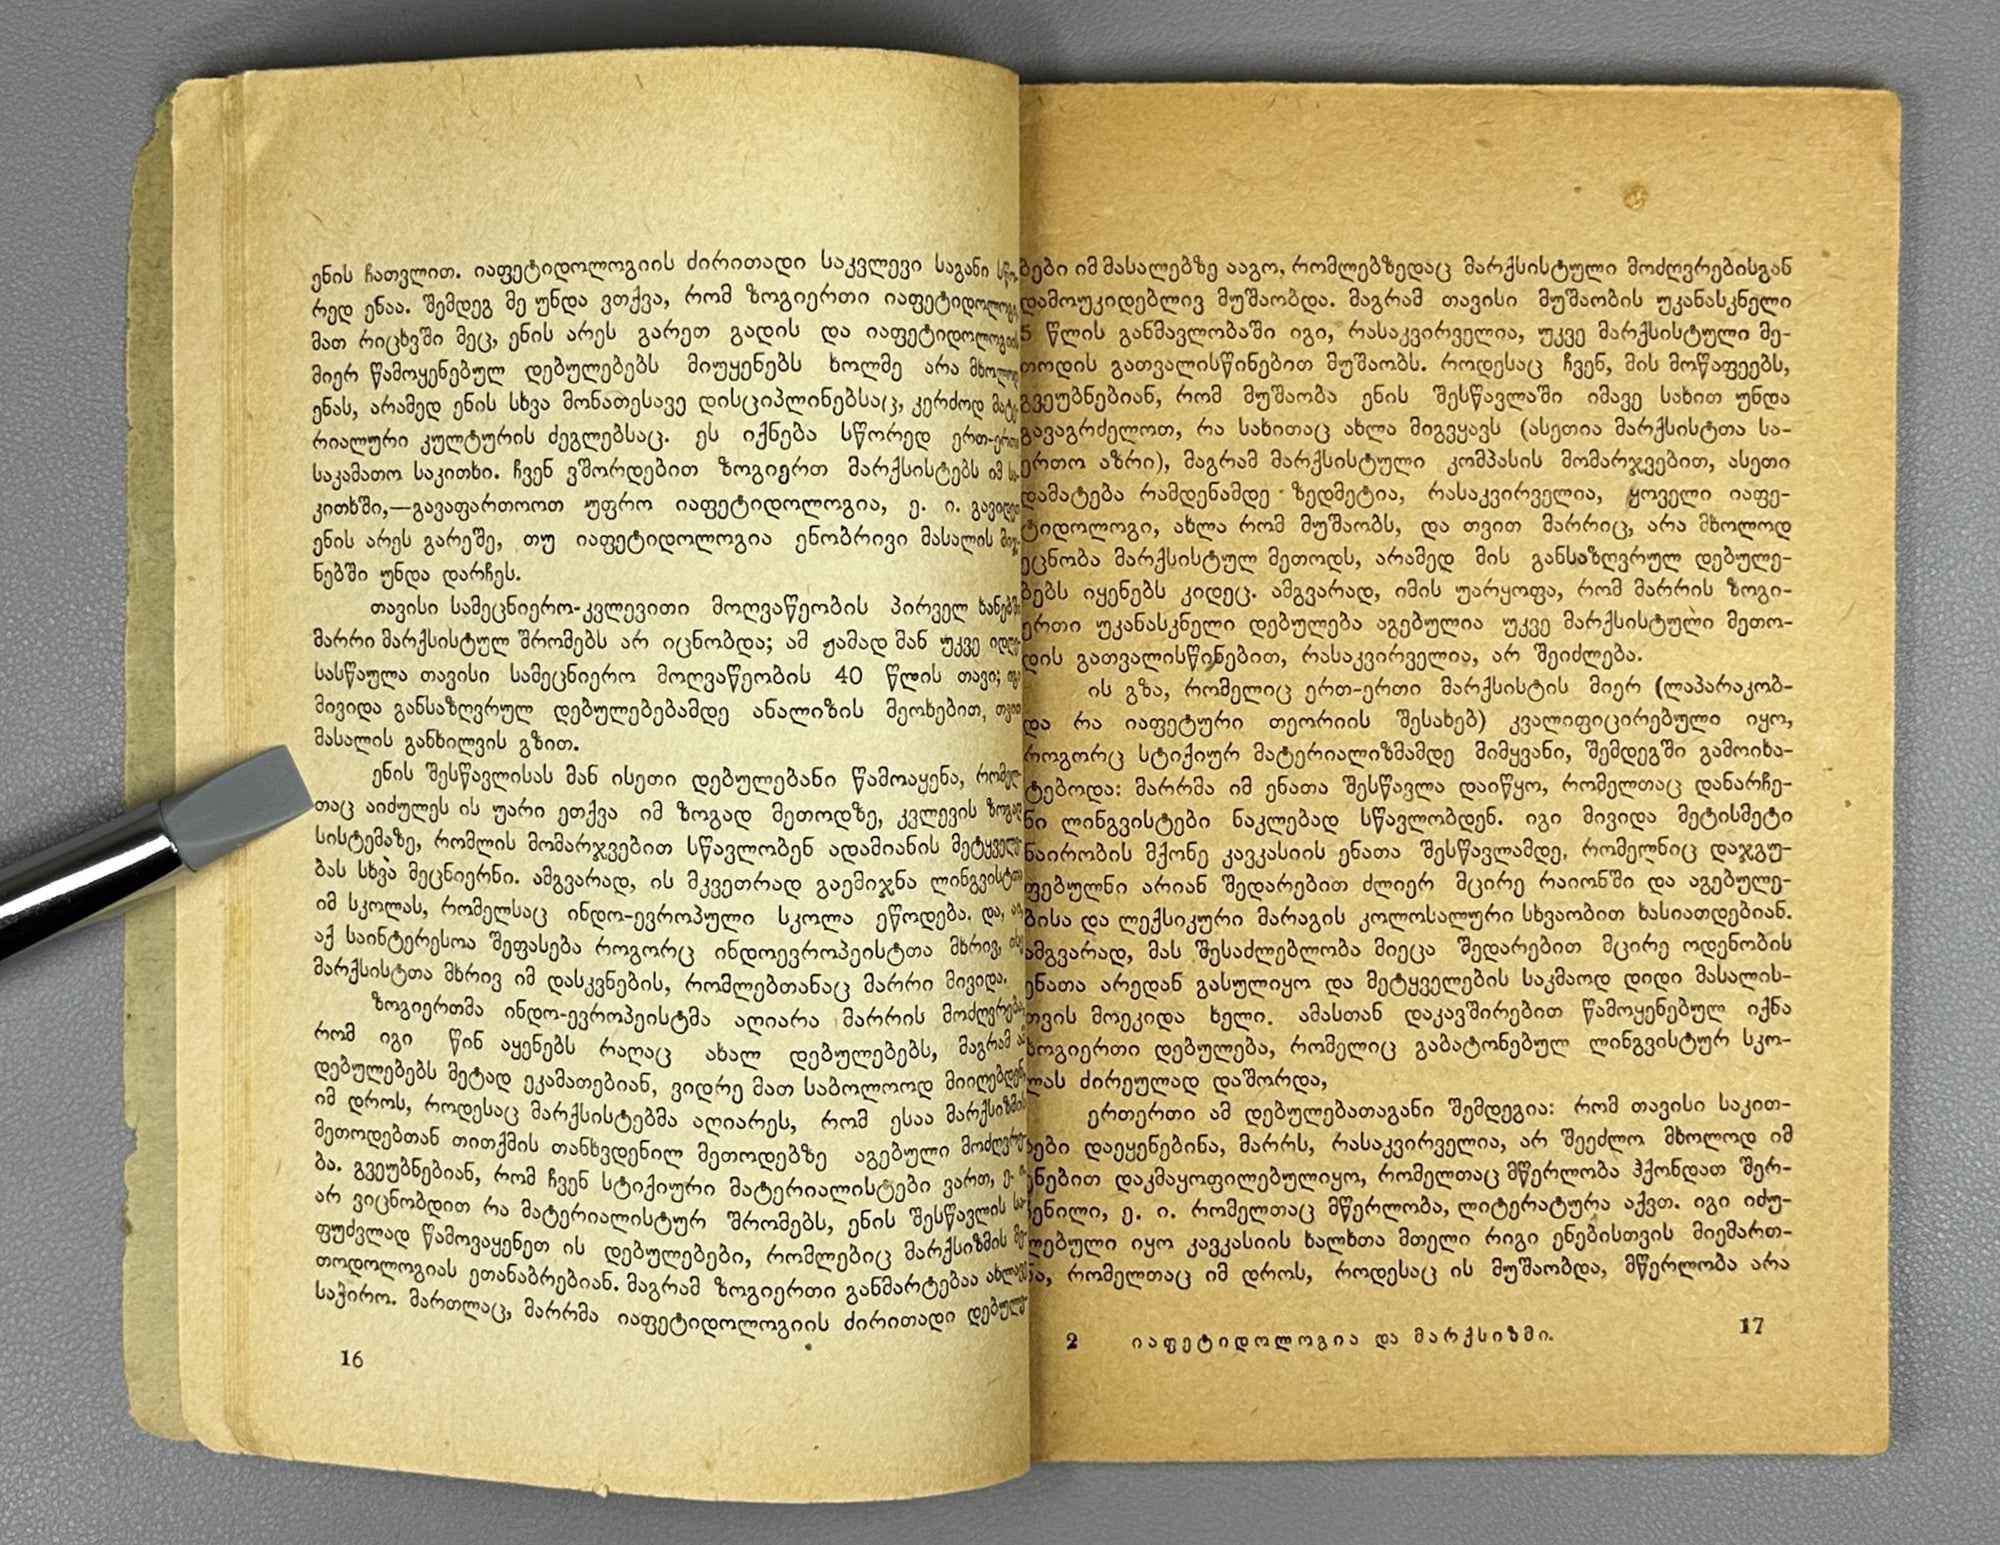 ენის ჩათვლით. იაფეტიდოლოგიის ძირითადი საკვლევი საგანი
რედ ენაა. შემდეგ მე უნდა ვთქვა, რომ ზოგიერთი
მათ რიცხვში მეც, ენის არეს გარეთ გადის და
მიერ წამოყენებულ დებულებებს მიუყენებს ხოლმე არა მხოლოდ
ენას, არამედ ენის სხვა მონათესავე დისციპლინებსაც, კერძოდ მატე-
რიალური კულტურის ძეგლებსაც. ეს იქნება სწორედ ერთ-ერთი
საკამათო საკითხი. ჩვენ ვშორდებით ზოგიერთ მარქსისტებს იმ სა-
კითხში,—გავაფართოოთ უფრო იაფეტიდოლოგია, ე. ი. გავიდეთ
ენის არეს გარეშე, თუ იაფეტიდოლოგია ენობრივი მასალის
ნებში უნდა დარჩეს.
თავისი სამეცნიერო-კვლევითი მოღვაწეობის პირველ ხანებში
მარრი მარქსისტულ შრომებს არ იცნობდა; ამ ჟამად მან უკვე
სასწაულა თავისი სამეცნიერო მოღვაწეობის 40 წლის თავი;
მივიდა განსაზღვრულ დებულებებამდე ანალიზის მეოხებით, თვით
მასალის განხილვის გზით.
ენის შესწავლისას მან ისეთი დებულებანი წამოაყენა, რომელ-
თაც აიძულეს ის უარი ეთქვა იმ ზოგად მეთოდზე, კვლევის ზოგად
სისტემაზე, რომლის მომარჯვებით სწავლობენ ადამიანის მეტყველე-
ბას სხვა მეცნიერნი. ამგვარად, ის მკვეთრად გაემიჯნა ლინგვისტთა
იმ სკოლას, რომელსაც ინდო-ევროპული სკოლა ეწოდება. და,
აქ საინტერესოა შეფასება როგორც ინდოევროპეისტთა მხრივ, ისე
მარქსისტთა მხრივ იმ დასკვნების, რომლებთანაც მარრი მივიდა.
ზოგიერთმა ინდო-ევროპეისტმა აღიარა მარრის მოძღვრება
რომ იგი წინ აყენებს რაღაც ახალ დებულებებს, მაგრამ
დებულებებს მეტად ეკამათებიან, ვიდრე მათ საბოლოოდ მიიღებდენ
იმ დროს, როდესაც მარქსისტებმა აღიარეს, რომ ესაა მარქსიზმის
მეთოდებთან თითქმის თანხვდენილ მეთოდებზე აგებული მოძღვრე-
ბა. გვეუბნებიან, რომ ჩვენ სტიქიური მატერიალისტები ვართ, ე. ი.
არ ვიცნობდით რა მატერიალისტურ შრომებს, ენის შესწავლის სა-
ფუძვლად წამოვაყენეთ ის დებულებები, რომლებიც მარქსიზმის მე-
თოდოლოგიას ეთანაბრებიან. მაგრამ ზოგიერთი განმარტებაა ახლავე
საჭირო. მართლაც, მარრმა იაფეტიდოლოგიის ძირითადი დებულე-
16
ბები იმ მასალებზე ააგო, რომლებზედაც მარქსისტული მოძღვრებისგან
დამოუკიდებლივ მუშაობდა. მაგრამ თავისი მუშაობის უკანასკნელი
5 წლის განმავლობაში იგი, რასაკვირველია, უკვე მარქსისტული მე-
თოდის გათვალისწინებით მუშაობს. როდესაც ჩვენ, მის მოწაფეებს,
გვეუბნებიან, რომ მუშაობა ენის შესწავლაში იმავე სახით უნდა
გავაგრძელოთ, რა სახითაც ახლა მიგვყავს (ასეთია მარქსისტთა სა-
ერთო აზრი), მაგრამ მარქსისტული კომპასის მომარჯვებით, ასეთი
დამატება რამდენამდე ზედმეტია, რასაკვირველია, ყოველი იაფე-
ტიდოლოგი, ახლა რომ მუშაობს, და თვით მარრიც, არა მხოლოდ
ეცნობა მარქსისტულ მეთოდს, არამედ მის განსაზღვრულ დებულე-
ბებს იყენებს კიდეც. ამგვარად, იმის უარყოფა, რომ მარრის ზოგი-
ერთი უკანასკნელი დებულება აგებულია უკვე მარქსისტული მეთო-
დის გათვალისწინებით, რასაკვირველია, არ შეიძლება.
ის გზა, რომელიც ერთ-ერთი მარქსისტის მიერ (ლაპარაკობ-
და რა იაფეტური თეორიის შესახებ) კვალიფიცირებული იყო,
როგორც სტიქიურ მატერიალიზმამდე მიმყვანი, შემდეგში გამოიხა-
ტებოდა: მარრმა იმ ენათა შესწავლა დაიწყო, რომელთაც დანარჩე-
ნი ლინგვისტები ნაკლებად სწავლობდენ. იგი მივიდა მეტისმეტი
ნაირობის მქონე კავკასიის ენათა შესწავლამდე, რომელნიც დაჯგუ-
ფებულნი არიან შედარებით ძლიერ მცირე რაიონში და აგებულე-
ბისა და ლექსიკური მარაგის კოლოსალური სხვაობით ხასიათდებიან.
ამგვარად, მას შესაძლებლობა მიეცა შედარებით მცირე ოდენობის
ენათა არედან გასულიყო და მეტყველების საკმაოდ დიდი მასალის-
თვის მოეკიდა ხელი. ამასთან დაკავშირებით წამოყენებულ იქნა
ზოგიერთი დებულება, რომელიც გაბატონებულ ლინგვისტურ სკო-
ლას ძირეულად დაშორდა,
ერთერთი ამ დებულებათაგანი შემდეგია: რომ თავისი საკით-
ხები დაეყენებინა, მარრს, რასაკვირველია, არ შეეძლო მხოლოდ იმ
ენებით დაკმაყოფილებულიყო, რომელთაც მწერლობა ჰქონდათ შერ-
ჩენილი, ე. ი. რომელთაც მწერლობა, ლიტერატურა აქვთ. იგი იძუ-
ლებული იყო კავკასიის ხალხთა მთელი რიგი ენებისთვის მიემართ-
ნა, რომელთაც იმ დროს, როდესაც ის მუშაობდა, მწერლობა არა
2 იაფეტიდოლოგია და მარქსიზმი.
17